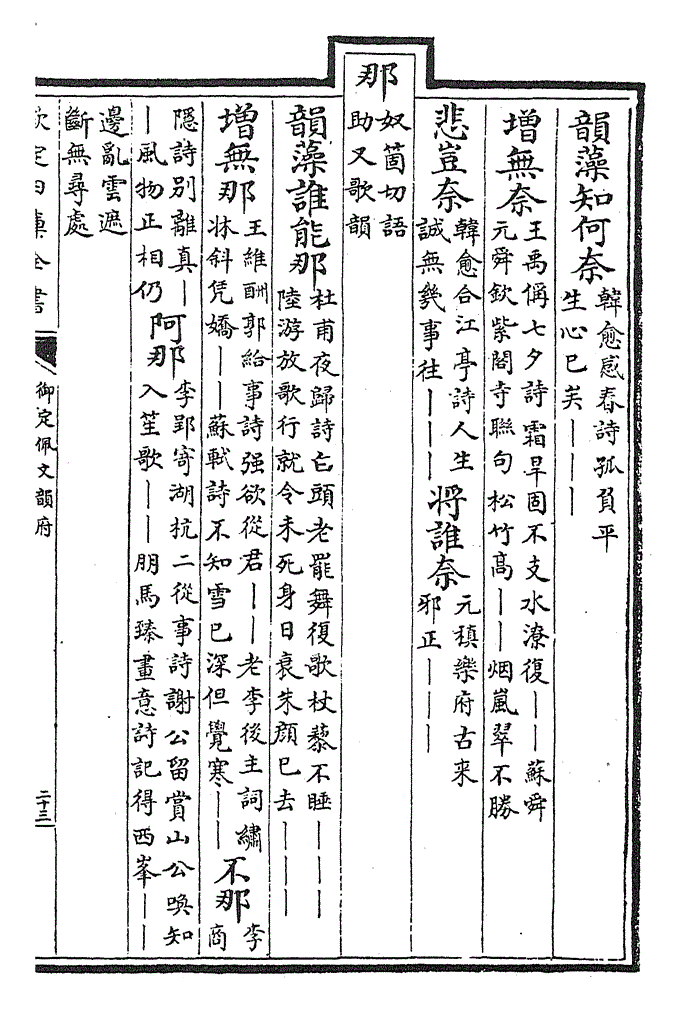 韻藻知何奈韓愈感春詩孤負平
生心已矣｜｜｜
增無奈王禹偁七夕詩霜旱固不支水潦復｜｜蘇舜
元舜欽紫閣寺聯句松竹高｜｜烟嵐翠不勝
悲豈奈韓愈合江亭詩人生
誠無幾事往｜｜｜將誰奈元稹樂府古来
邪正｜｜｜
那
奴箇切語
助又歌韻
韻藻誰能那杜甫夜歸詩白頭老罷舞復歌杖藜不睡｜｜｜
陸游放歌行就令未死身日衰朱顔已去｜｜｜
增無那王維酬郭給事詩强欲從君｜｜老李後主詞繡
牀斜凭嬌｜｜蘇軾詩不知雪已深但覺寒｜｜不那李商
隱詩别離真｜
｜風物正相仍阿那李郢寄湖杭二從事詩謝公留賞山公喚知
入笙歌｜｜朋馬臻畫意詩記得西峯｜｜
邊亂雲遮
斷無尋處
欽定四庫全書
御定佩文韻府
二十三